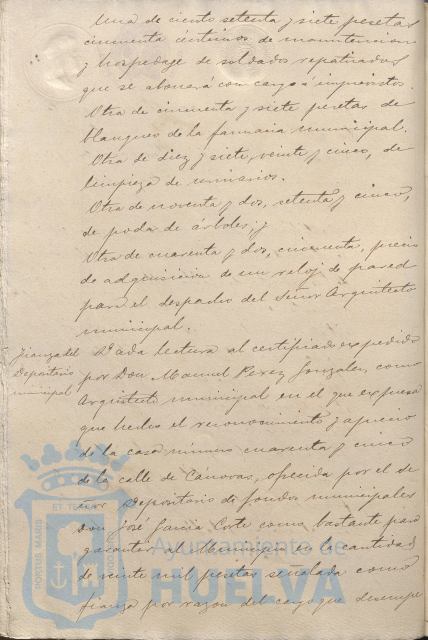 Una de ciento setenta y siete pesetas
cincuenta céntimos de manutencion
y hospedaje de soldados repatriados
que se abonará con cargo á imprevistos.
Otra de cincuenta y siete pesetas de
blanqueo de la farmacia municipal.
Otra de diez y siete, veinte y cinco, de
limpieza de urinarios.
Otra de noventa y dos, setenta y cinco,
de poda de árboles; y
Otra de cuarenta y dos, cincuenta, precio
de adquisicion de un reloj de pared
para el despacho del Señor Arquitecto
municipal.
Fianza del
Depositario
municipal
Dada lectura al certificado expedido
por Don Manuel Perez Gonzalez, como
Arquitecto municipal en el que expresa
que hecho el reconocimiento y aprecio
de la casa número cuarenta y cinco
de la calle de Cánovas, ofrecida por el se
ñor Depositario de fondos municipales
Don José García Corte como bastante para
garantir al Municipio en la cantidad
de veinte mil pesetas señalada como
fianza por razon del cargo que desempe
PORTUS MARIS ET TERRAE
Ayuntamiento de
HUELVA